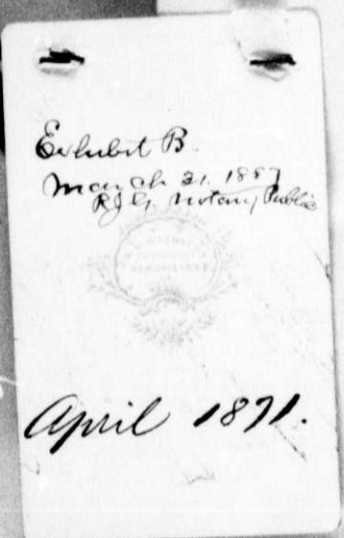 Exhibit B.
March 21. 1887
RJG, Notary Public
April 1871.